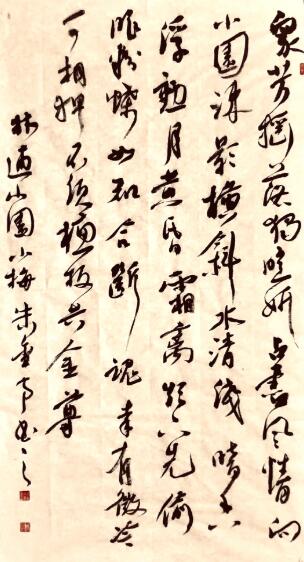 眾芳搖落獨暄妍占盡風情向
小園疎影橫斜水清淺暗香
浮動月黃昏霜禽欲下先偷
眼粉蝶如知合斷魂幸有微吟
可相狎不須檀板共金尊
林逋山園小梅朱金书之